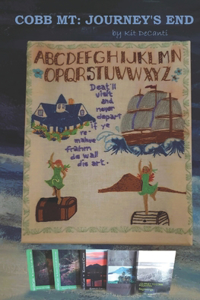 COBB MT: JOURNEY'S END
by Kit DeCanti
ABCDEFGHIJKLMN
OPQRSTUVWXYZ.
Deat'll
visit
and
never
depart
if ye
re-
mahve
frahm
de wall
dis art.